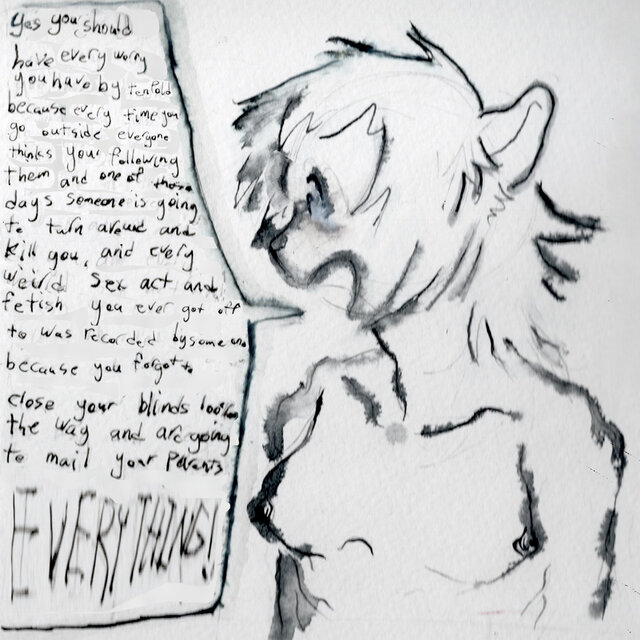 Yes you should
have every worry
you have by tenfold
because every time you
go outside everyone
thinks your following
them and one of those
days someone is going
to turn around and
kill you, and every
weird sex act and
fetish you ever got off
to was recorded by someone
because you forgot to
close your blinds
the way and are going
to mail your parents
EVERYTHING!